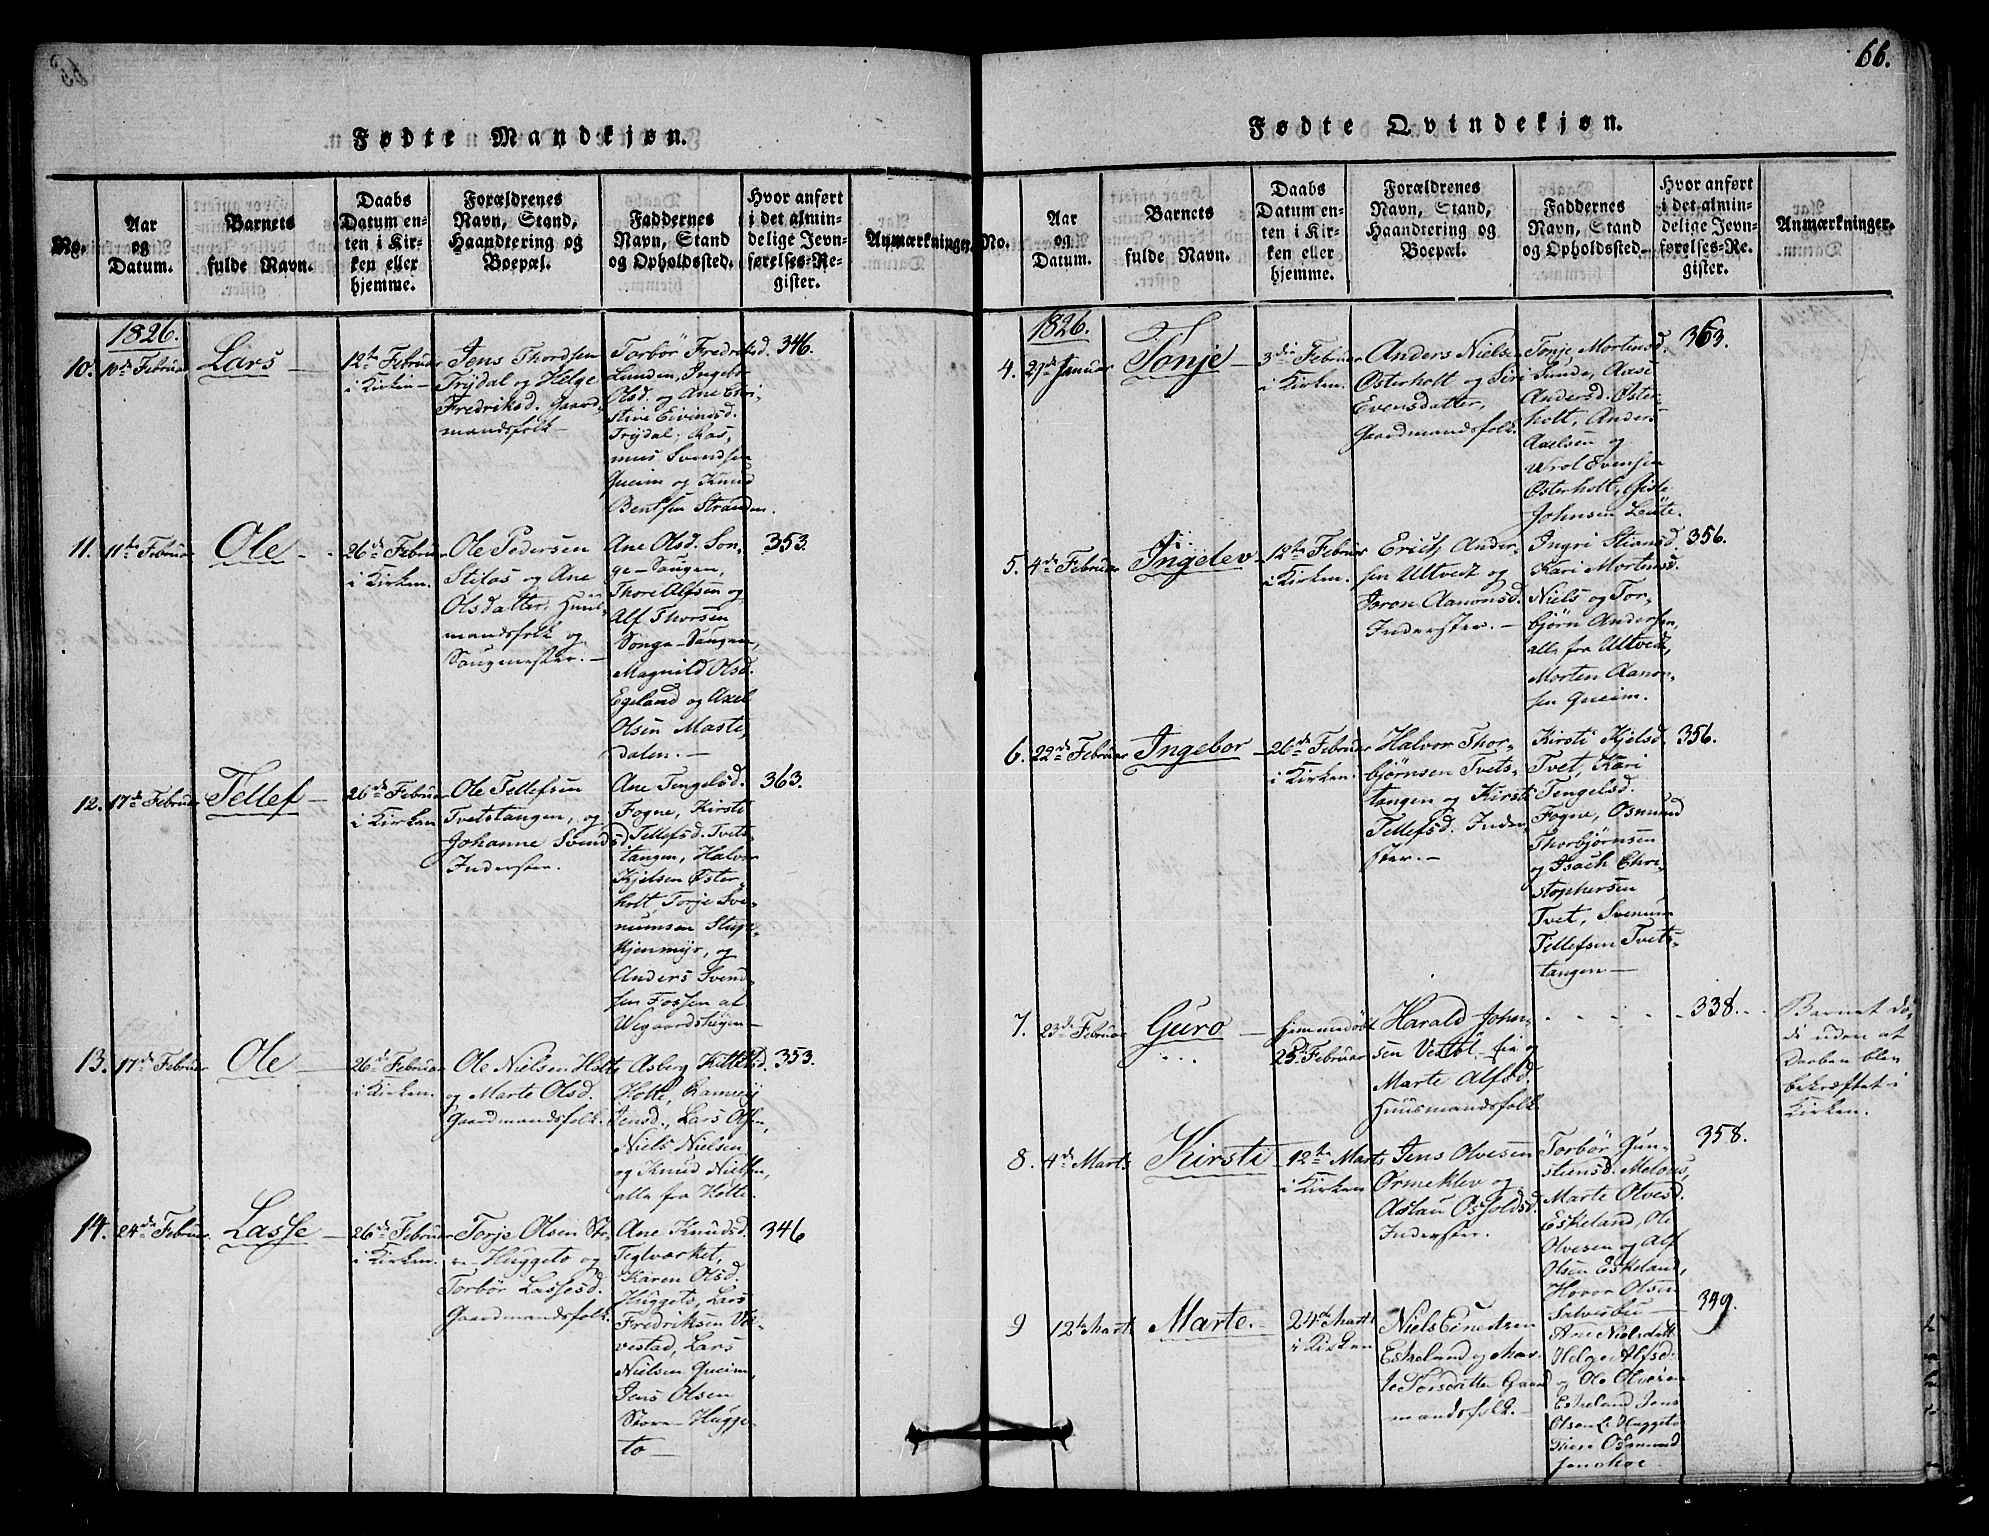 66.
Fødte Mandkjøn.
No.
Aar
og
Datum.
Barnets
fulde Navn.
Daabs
Datum en-
ten i Kir-
ken eller
hjemme.
Forældrenes
Navn, Stand,
Haandtering og
Boepæl.
Faddernes
Navn, Stand
og Opholdssted.
Hvor anført
i det almin-
delige Jevn-
førelses-Re-
gister.
Anmærkninger.
1826.
10.
10de Februar
Lars
12te Februar
i Kirken
Jens Thordsen
Trydal og Helge
Fredriksd. Gaard-
mandsfolk
Torbør Fredriksd.
Lunden, Ingebor
Olsd. og Ane Chri-
stine Eivindsd.
Trydal; Ras-
mus Svendsen
Queim og Knud
Bentsen Stranden.
346.
11.
11te Februar
Ole
26de Februar
i Kirken.
Ole Pedersen
Stilos og Ane
Olsdatter, Huus-
mandsfolk og
Saugmester.
Ane Olsd. Son-
ge-Saugen,
Thore Alfsen og
Alf Thorsen
Songe-Saugen,
Magnild Olsd.
Egeland og Axel
Olsen Maste-
dalen.
353.
12.
17de Februar
Tellef
26de Februar
i Kirken
Ole Tellefsen
Tvetstangen, og
Johanne Svendsd.
Inderster.
Ane Tengelsd.
Fogne, Kirsti
Tellefsd. Tvets-
tangen, Halvor
Kjelsen Øster-
holt Torje Sve-
numsen Stupe-
kjenmyr, og
Anders Svend-
sen Fossen at
Wegaardsheyen
363.
13.
17de Februar
Ole
26de Februar
i Kirken.
Ole Nielsen Holte
og Marte Olsd.
Gaardmandsfolk.
Asberg Kittilsd.
Holte, Ramseij
Jensd., Lars Olsen,
Niels Nielsen
og Knud Nielsen,
alle fra Holte.
353.
14.
24de Februar
Lasse
26de Februar
i Kirken.
Torje Olsen Sto-
re-Huggeto og
Torbør Lassesd.
Gaardmandsfolk.
Ane Knudsd.
Teglværket,
Karen Olsd.
Huggeto, Lars
Fredriksen Ve-
vestad, Lars
Nielsen Queim,
Jens Olsen
Store-Hugge-
to
346
Fødte Qvindekjøn.
No.
Aar
og
Datum.
Barnets
fulde Navn.
Daabs
Datum en-
ten i Kir-
ken eller
hjemme.
Forældrenes
Navn, Stand,
Haandtering og
Boepæl.
Faddernes
Navn, Stand
og Opholdssted.
Hvor anført
i det almin-
delige Jevn-
førelses-Re-
gister.
Anmærkninger.
1826.
4.
27de Januar
Tonje
3die Februar
i Kirken.
Anders Nielsen
Østerholt og Siri
Evensdatter,
Gaardmandsfolk.
Tonje Mortensd.
Sunde, Aase
Andersd. Øster-
holt, Anders
Axelsen og
Wrol Evensen
Østerholt, Giste
Johnsen Leite.
363.
5.
4de Februar
Ingelev
12te Februar
i Kirken.
Erich Ander-
sen Ulltvedt og
Joron Aanonsd.
Inderster.
Ingri Stiansd.
Kari Mortensd.
Niels og Tor-
bjørn Andersen,
alle fra Ulltvedt,
Morten Aanon-
sen Queim.
356.
6.
22de Februar
Ingebor
26de Februar
i Kirken.
Halvor Thor-
bjørnsen Tvets-
tangen og Kirsti
Tellefsd. Inder-
ster.
Kirsti Kjelsd.
Tvet, Kari
Tengelsd.
Fogne, Osmund
Thorbjørnsen
og Isach Chri-
stophersen
Tvet, Svenum
Tellefsen Tvets-
tangen
356.
7.
23de Februar
Guro
Hjemmedøbt
25de Februar
Harald John-
sen Vestøl-lie og
Marte Alfsd.
Huusmandsfolk
338.
Barnet dø-
de uden at
Daaben blev
bekræftet i
Kirken.
8.
4de Marts
Kirsti
12te Marts
i Kirken
Jens Olvesen
Ormeklev og
Aslau Osfoldsd.
Inderster.
Torbør Gun-
stiensd. Melaas,
Marte Olvesd.
Eskeland, Ole
Olvesen og Alf
Olsen Eskeland,
Hovor Olsen
Salvisbu
358.
9
12te Marts
Marte.
24de Marts
i Kirken
Niels Einedsen
Eskeland og Mar-
te Torsdatter Gaard
mandsfolk.
Ane Nielsdatt.
Helge Alfsd.
og Ole Olvesen
Eskeland, Jens
Olsen L. Huggeto
Tiere Osmund
sen Moe
349.